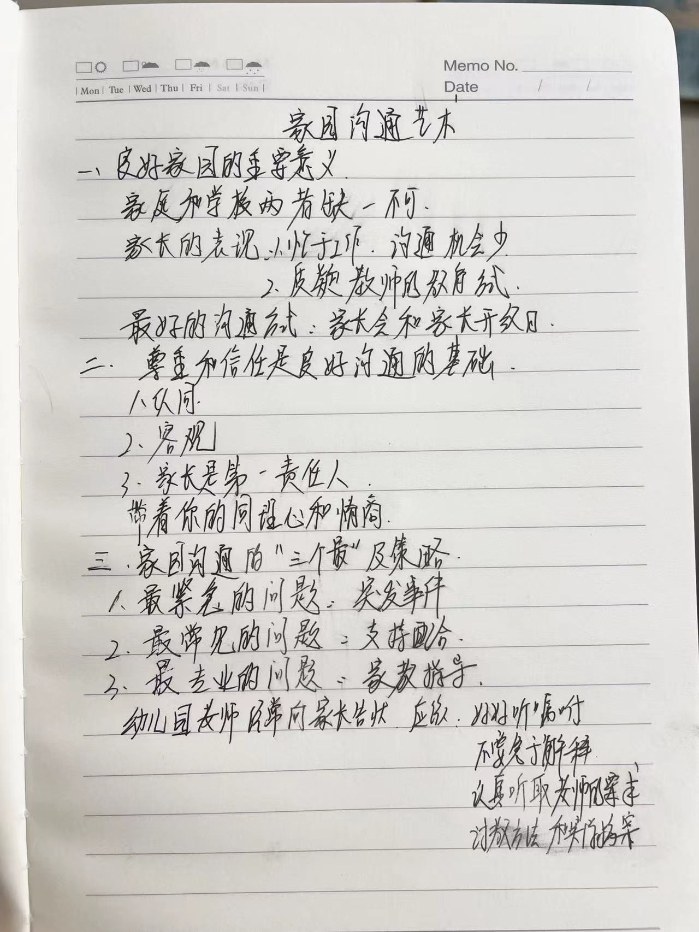 Memo No.
Mon Tue Wed Thu Fri Sat Sun
Date / /
家园沟通艺术
一、良好家园的重要意义.
家庭和学校两者缺一不可.
家长的表现:1.忙于工作.沟通机会少
2.质疑教师的教育方式.
最好的沟通方式:家长会和家长开放日.
二.尊重和信任是良好沟通的基础.
1、认同.
2、客观
3.家长是第一责任人.
带着你的同理心和情商.
三.家园沟通的"三个最"及策略.
1.最紧急的问题:突发事件
2.最常见的问题:支持配合.
3.最专业的问题:家教指导.
幼儿园老师经常向家长告状 应该:好好听嘱咐
不要急于解释、
认真听取老师的
讨教方法和